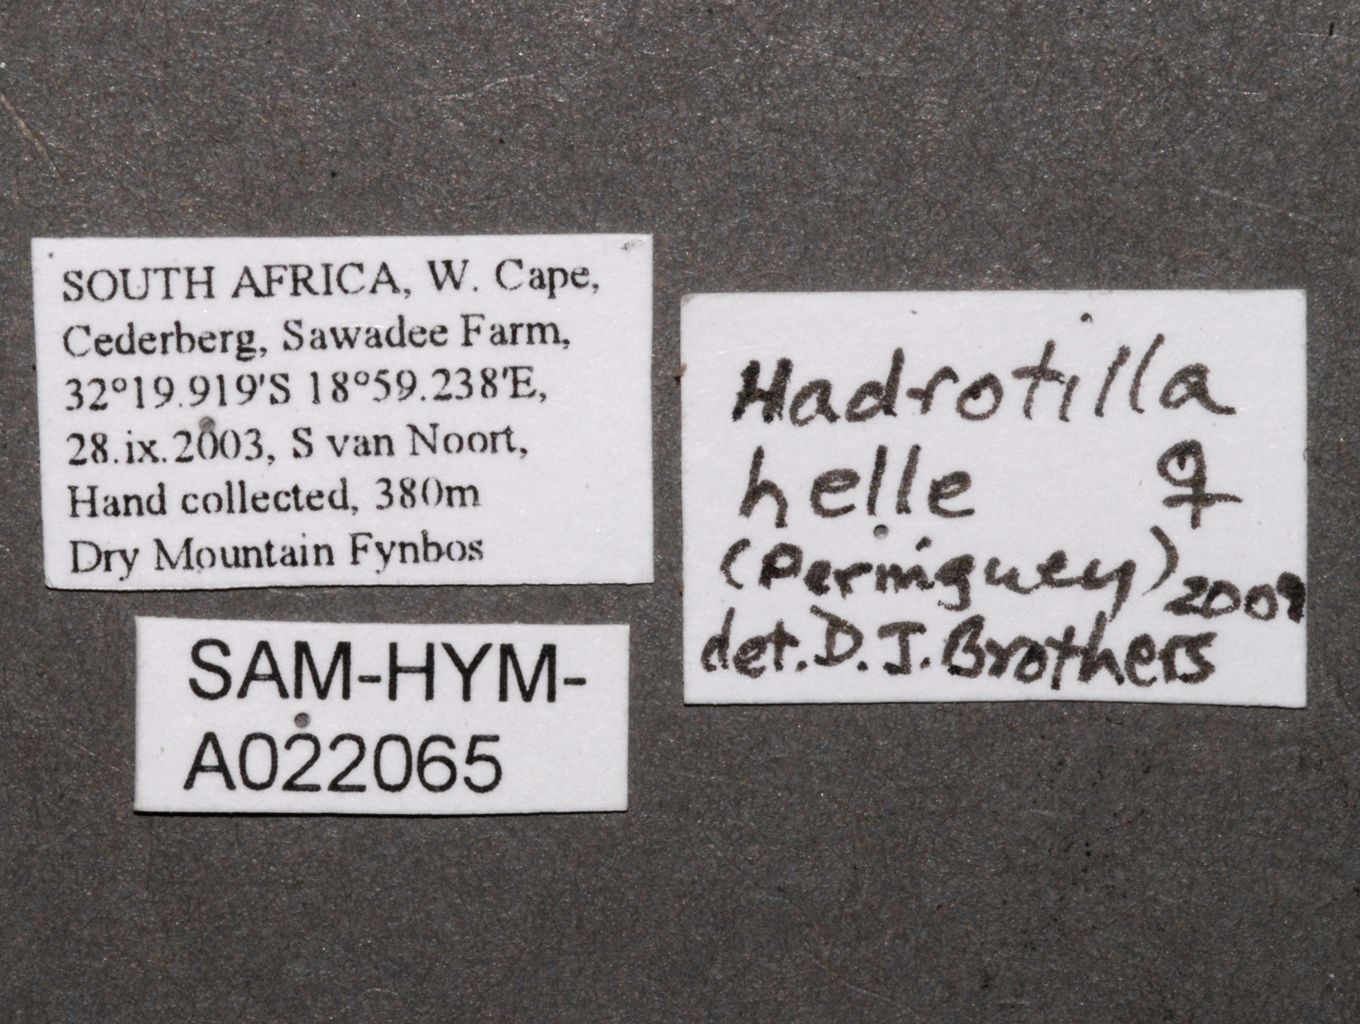 SOUTH AFRICA, W. Cape,
Cederberg, Sawadee Farm,
32°19.919'S 18°59.238'E,
28.ix.2003, S van Noort,
Hand collected, 380m
Dry Mountain Fynbos
SAM-HYM-
A022065
Hadrotilla
helle ♀
(Permiguey) 2009
det. D. J. Brothers